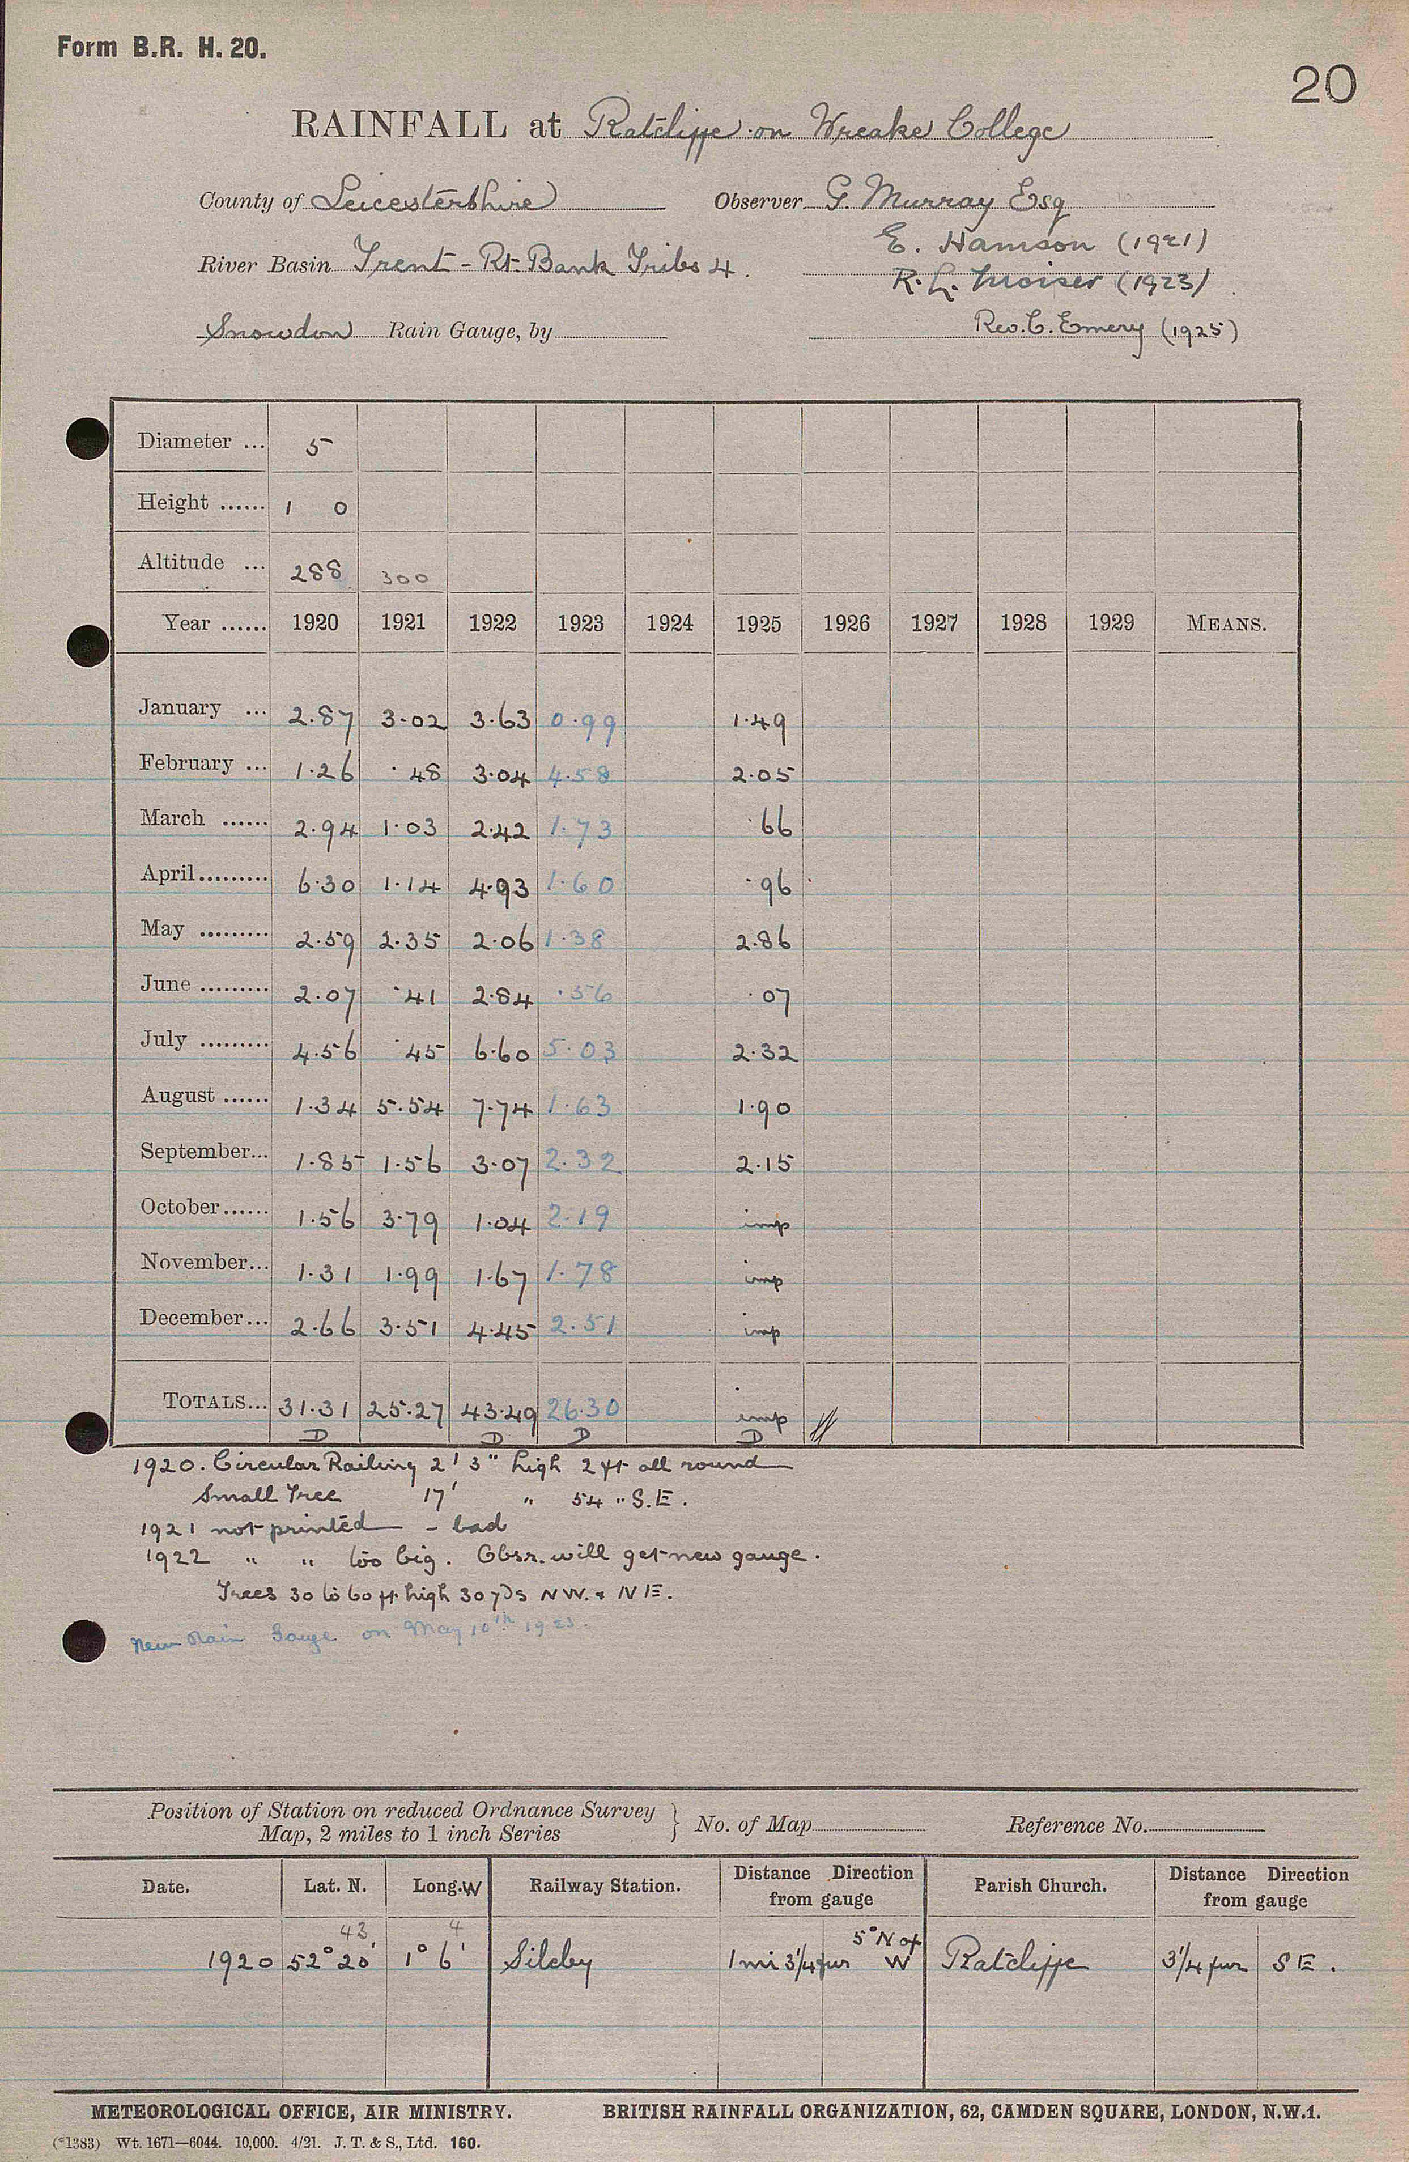 Form B.R. H. 20.
20
RAINFALL at Ratcliffe on Wreake College
County of Leicestershire Observer G. Murray Esq
E. Hamson (1921)
River Basin Trent - Rt. Bank Tribs 4.
R. L. Moiser (1923)
Snowdon Rain Gauge, by
Rev. C. Emery (1925)
Diameter ... 5
Height ...... 1 0
Altitude ... 288 300
Year ...... 1920 1921 1922 1923 1924 1925 1926 1927 1928 1929 MEANS.
January ... 2.87 3.02 3.63 0.99 1.49
February ... 1.26 .48 3.04 4.58 2.05
March ...... 2.94 1.03 2.42 1.73 .66
April......... 6.30 1.14 4.93 1.60 .96
May ......... 2.59 2.35 2.06 1.38 2.86
June ......... 2.07 .41 2.84 .56 .07
July ......... 4.56 .45 6.60 5.03 2.32
August ...... 1.34 5.54 7.74 1.63 1.90
September... 1.85 1.56 3.07 2.32 2.15
October...... 1.56 3.79 1.04 2.19 imp
November... 1.31 1.99 1.67 1.78 imp
December... 2.66 3.51 4.45 2.51 imp
TOTALS... 31.31 25.27 43.49 26.30 imp
D D D D
1920. Circular Railing 2' 3" high 2 ft all round
Small Tree 17' " 54 " S.E.
1921 not printed - bad
1922 " " too big. Obsr. will get new gauge.
Trees 30 to 60 ft high 30 yds NW. & NE.
New Rain Gauge on May 10th 1923.
Position of Station on reduced Ordnance Survey
Map, 2 miles to 1 inch Series } No. of Map Reference No.
Date. Lat. N. Long. W Railway Station. Distance Direction from gauge Parish Church. Distance Direction from gauge
43 4 5° N of
1920 52° 20' 1° 6' Sileby 1 mi 3 1/4 fur W Ratcliffe 3 1/4 fur S E.
METEOROLOGICAL OFFICE, AIR MINISTRY. BRITISH RAINFALL ORGANIZATION, 62, CAMDEN SQUARE, LONDON, N.W.1.
(*1383) Wt. 1671—6044. 10,000. 4/21. J. T. & S., Ltd. 160.